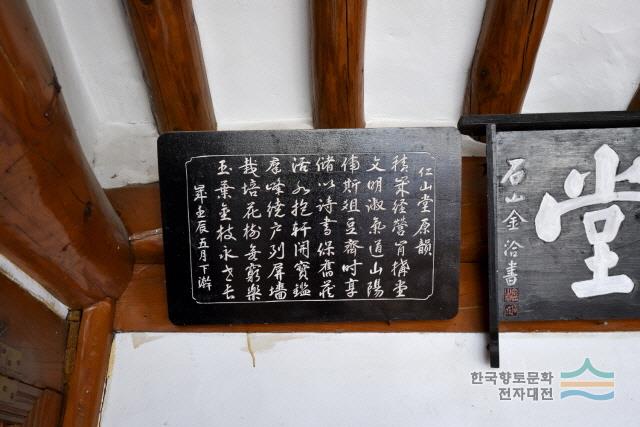 仁山堂原韻
積策經營肯構堂
文明淑氣道山陽
備斯俎豆齊時享
儲以詩書保舊
活水抱軒開寶鑑
峰繞户列屏墻
栽培花樹無窮樂
玉葉枝永世長
壬辰五月下澣
堂
石山金洽書
한국향토문화
전자대전